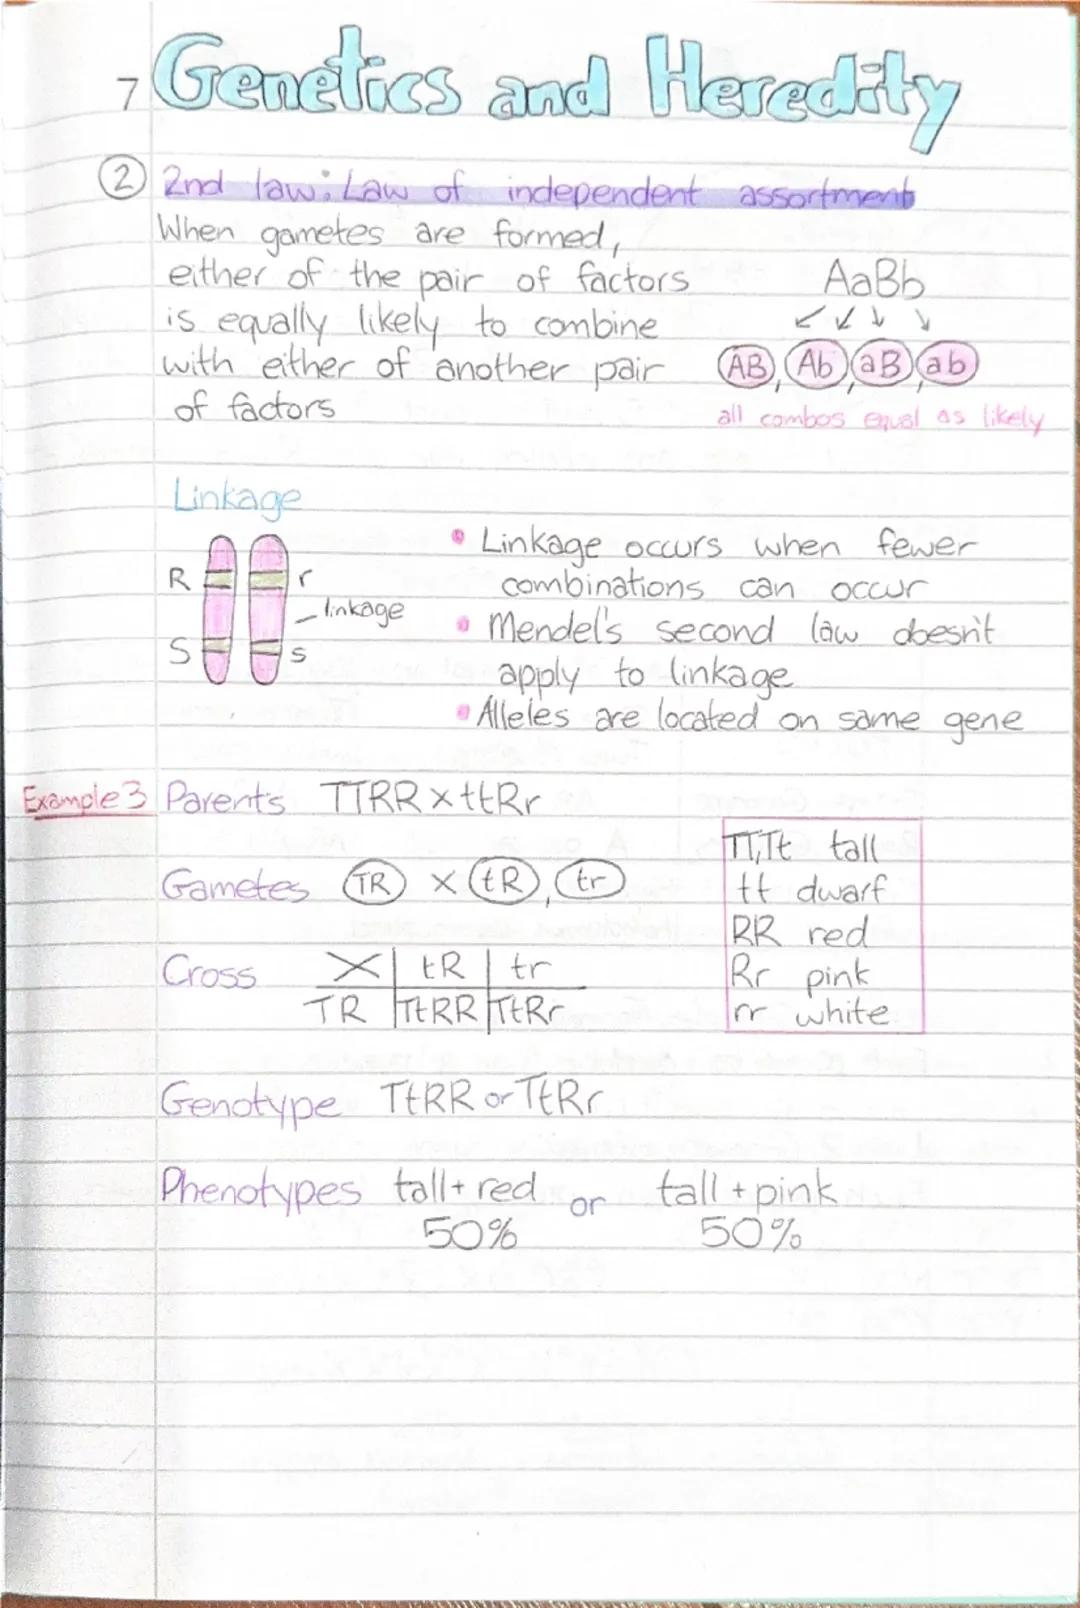 7 Genetics and Heredity
2 2nd law: Law of independent assortment
When gametes are formed,
either of the pair of factors
is equally likely to combine
with either of another pair
of factors
AaBb
AB, Ab, aB, ab
all combos equal as likely
Linkage
R r
linkage
S s
• Linkage occurs when fewer
combinations can occur
• Mendel's second law doesn't
apply to linkage
• Alleles are located on same gene
Example 3 Parents TTRR x ttRr
Gametes TR x tR, tr
Cross X tR tr
TR TtRR TtRr
TT,Tt tall
tt dwarf
RR red
Rr pink
rr white
Genotype TtRR or TtRr
Phenotypes tall + red or tall + pink
50% 50%